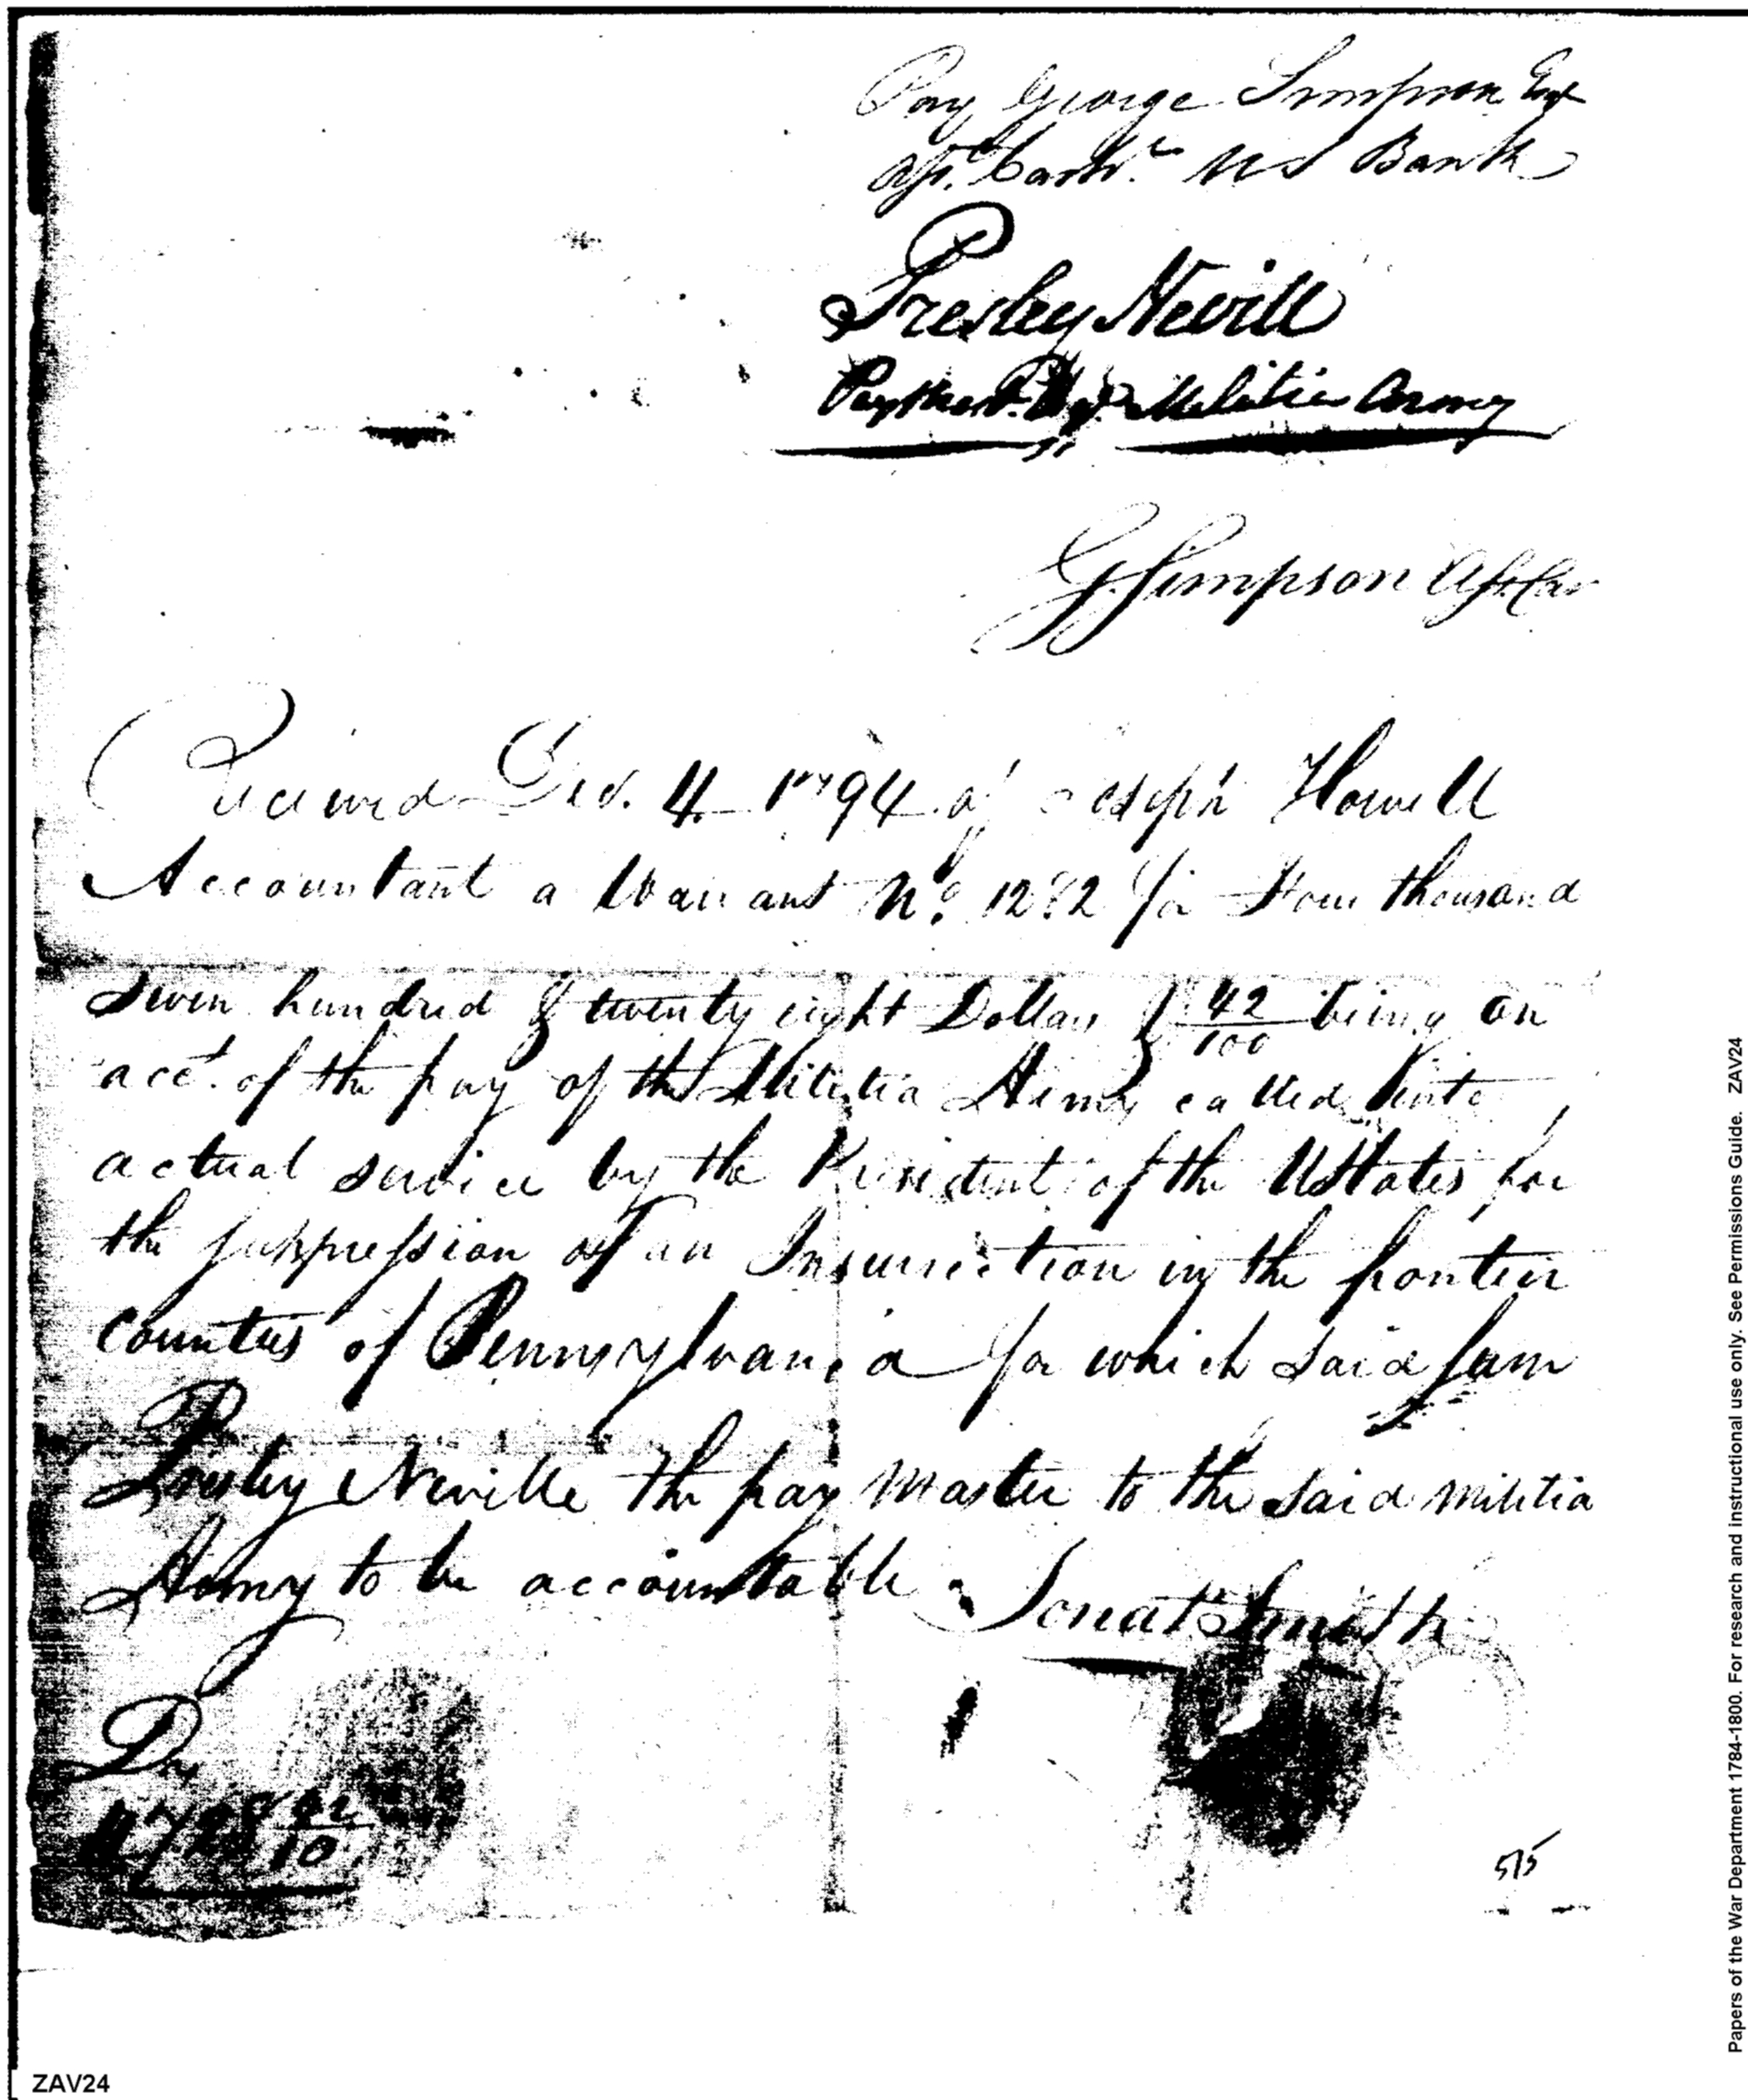 Pay George Simpson Esqr
Asst. Cashr. US Bank
Presley Nevill
Militia Army
G Simpson Asst Cas
Received Dec. 4 1794 of Joseph Howell
Accountant a Warrant No. for Four thousand
Seven hundred & twenty eight Dollars & 42/100 being on
acct. of the pay of the Militia Army called into
actual service by the President of the UStates for
the suppression of an Insurrection in the frontier
Counties of Pennsylvania for which said sum
Presley Neville the pay Master to the said militia
Army to be accountable
Jonat Smith
Drs
4728 42/10
515
ZAV24
Papers of the War Department 1784-1800. For research and instructional use only. See Permissions Guide. ZAV24